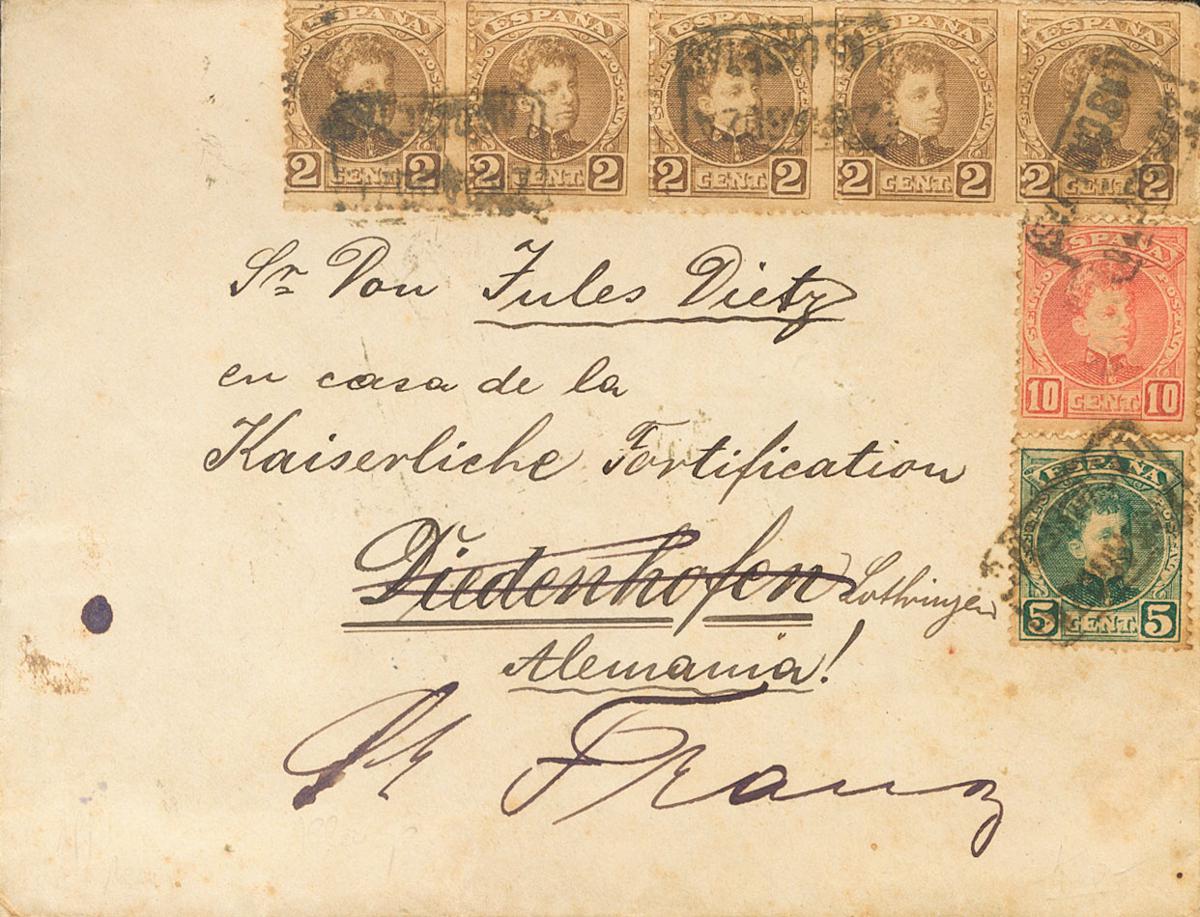 ESPAÑA ESPAÑA ESPAÑA ESPAÑA ESPAÑA
2 CENT. 2 2 CENT. 2 2 CENT. 2 2 CENT. 2 2 CENT. 2
Sr Don Jules Dietz
ESPAÑA
10 CENT. 10
en casa de la
Kaiserliche Fortification
ESPAÑA
5 CENT. 5
Diedenhofen Lothringen
Alemania!
St Franz